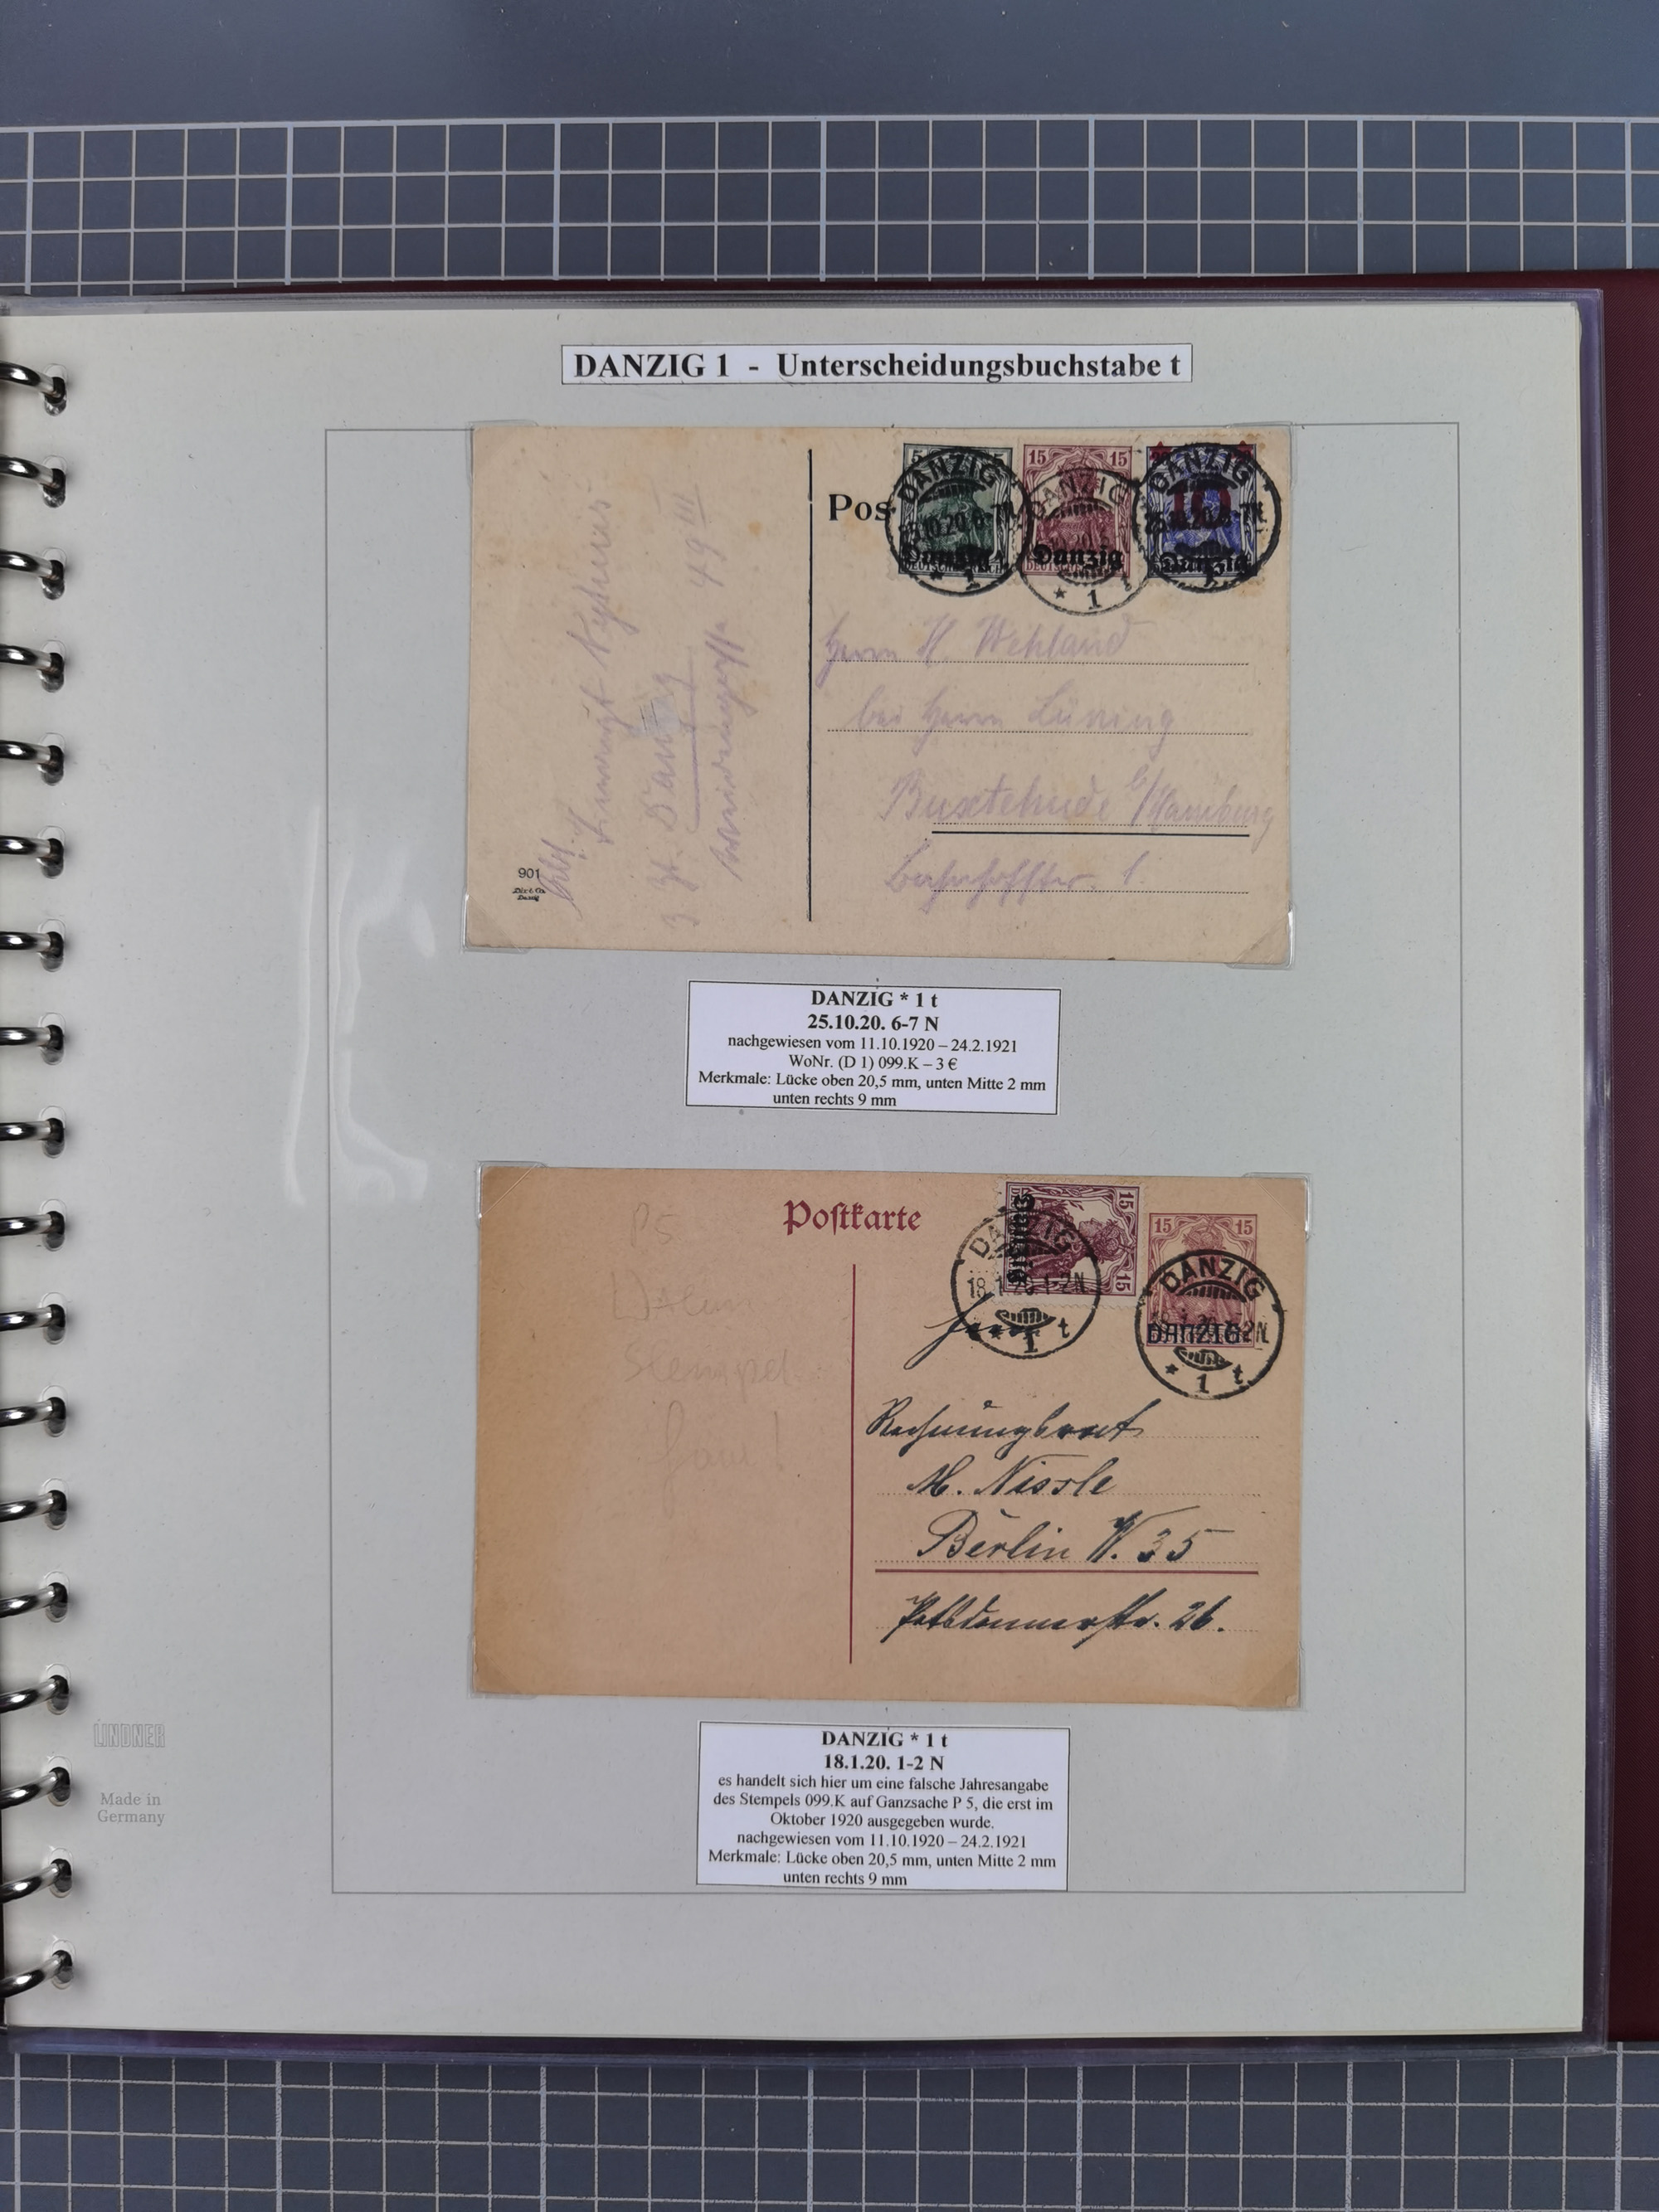 DANZIG 1 - Unterscheidungsbuchstabe t
5
15 15
10
DANZIG
25.10.20.6-7N
Danzig
* 1 t
DANZIG
Danzig
* 1 t
DANZIG
Danzig
Pos
Herrn H. Wehland
bei Herrn Lüning
Buxtehude b/Hamburg
Bahnhofstr. 1.
Abs.
z. Zt. Danzig
49 III
901
Danzig
DANZIG * 1 t
25.10.20. 6-7 N
nachgewiesen vom 11.10.1920 – 24.2.1921
WoNr. (D 1) 099.K – 3 €
Merkmale: Lücke oben 20,5 mm, unten Mitte 2 mm
unten rechts 9 mm
Postkarte
P5
Datum
Stempel
15 15
Danzig
15 15
DANZIG
DANZIG
18.1.20.1-2N
* 1 t
DANZIG
* 1 t
Rechnungsrat
M. Nissle
Berlin W. 35
Potsdamerstr. 26.
DANZIG * 1 t
18.1.20. 1-2 N
es handelt sich hier um eine falsche Jahresangabe
des Stempels 099.K auf Ganzsache P 5, die erst im
Oktober 1920 ausgegeben wurde.
nachgewiesen vom 11.10.1920 – 24.2.1921
Merkmale: Lücke oben 20,5 mm, unten Mitte 2 mm
unten rechts 9 mm
LINDNER
Made in
Germany